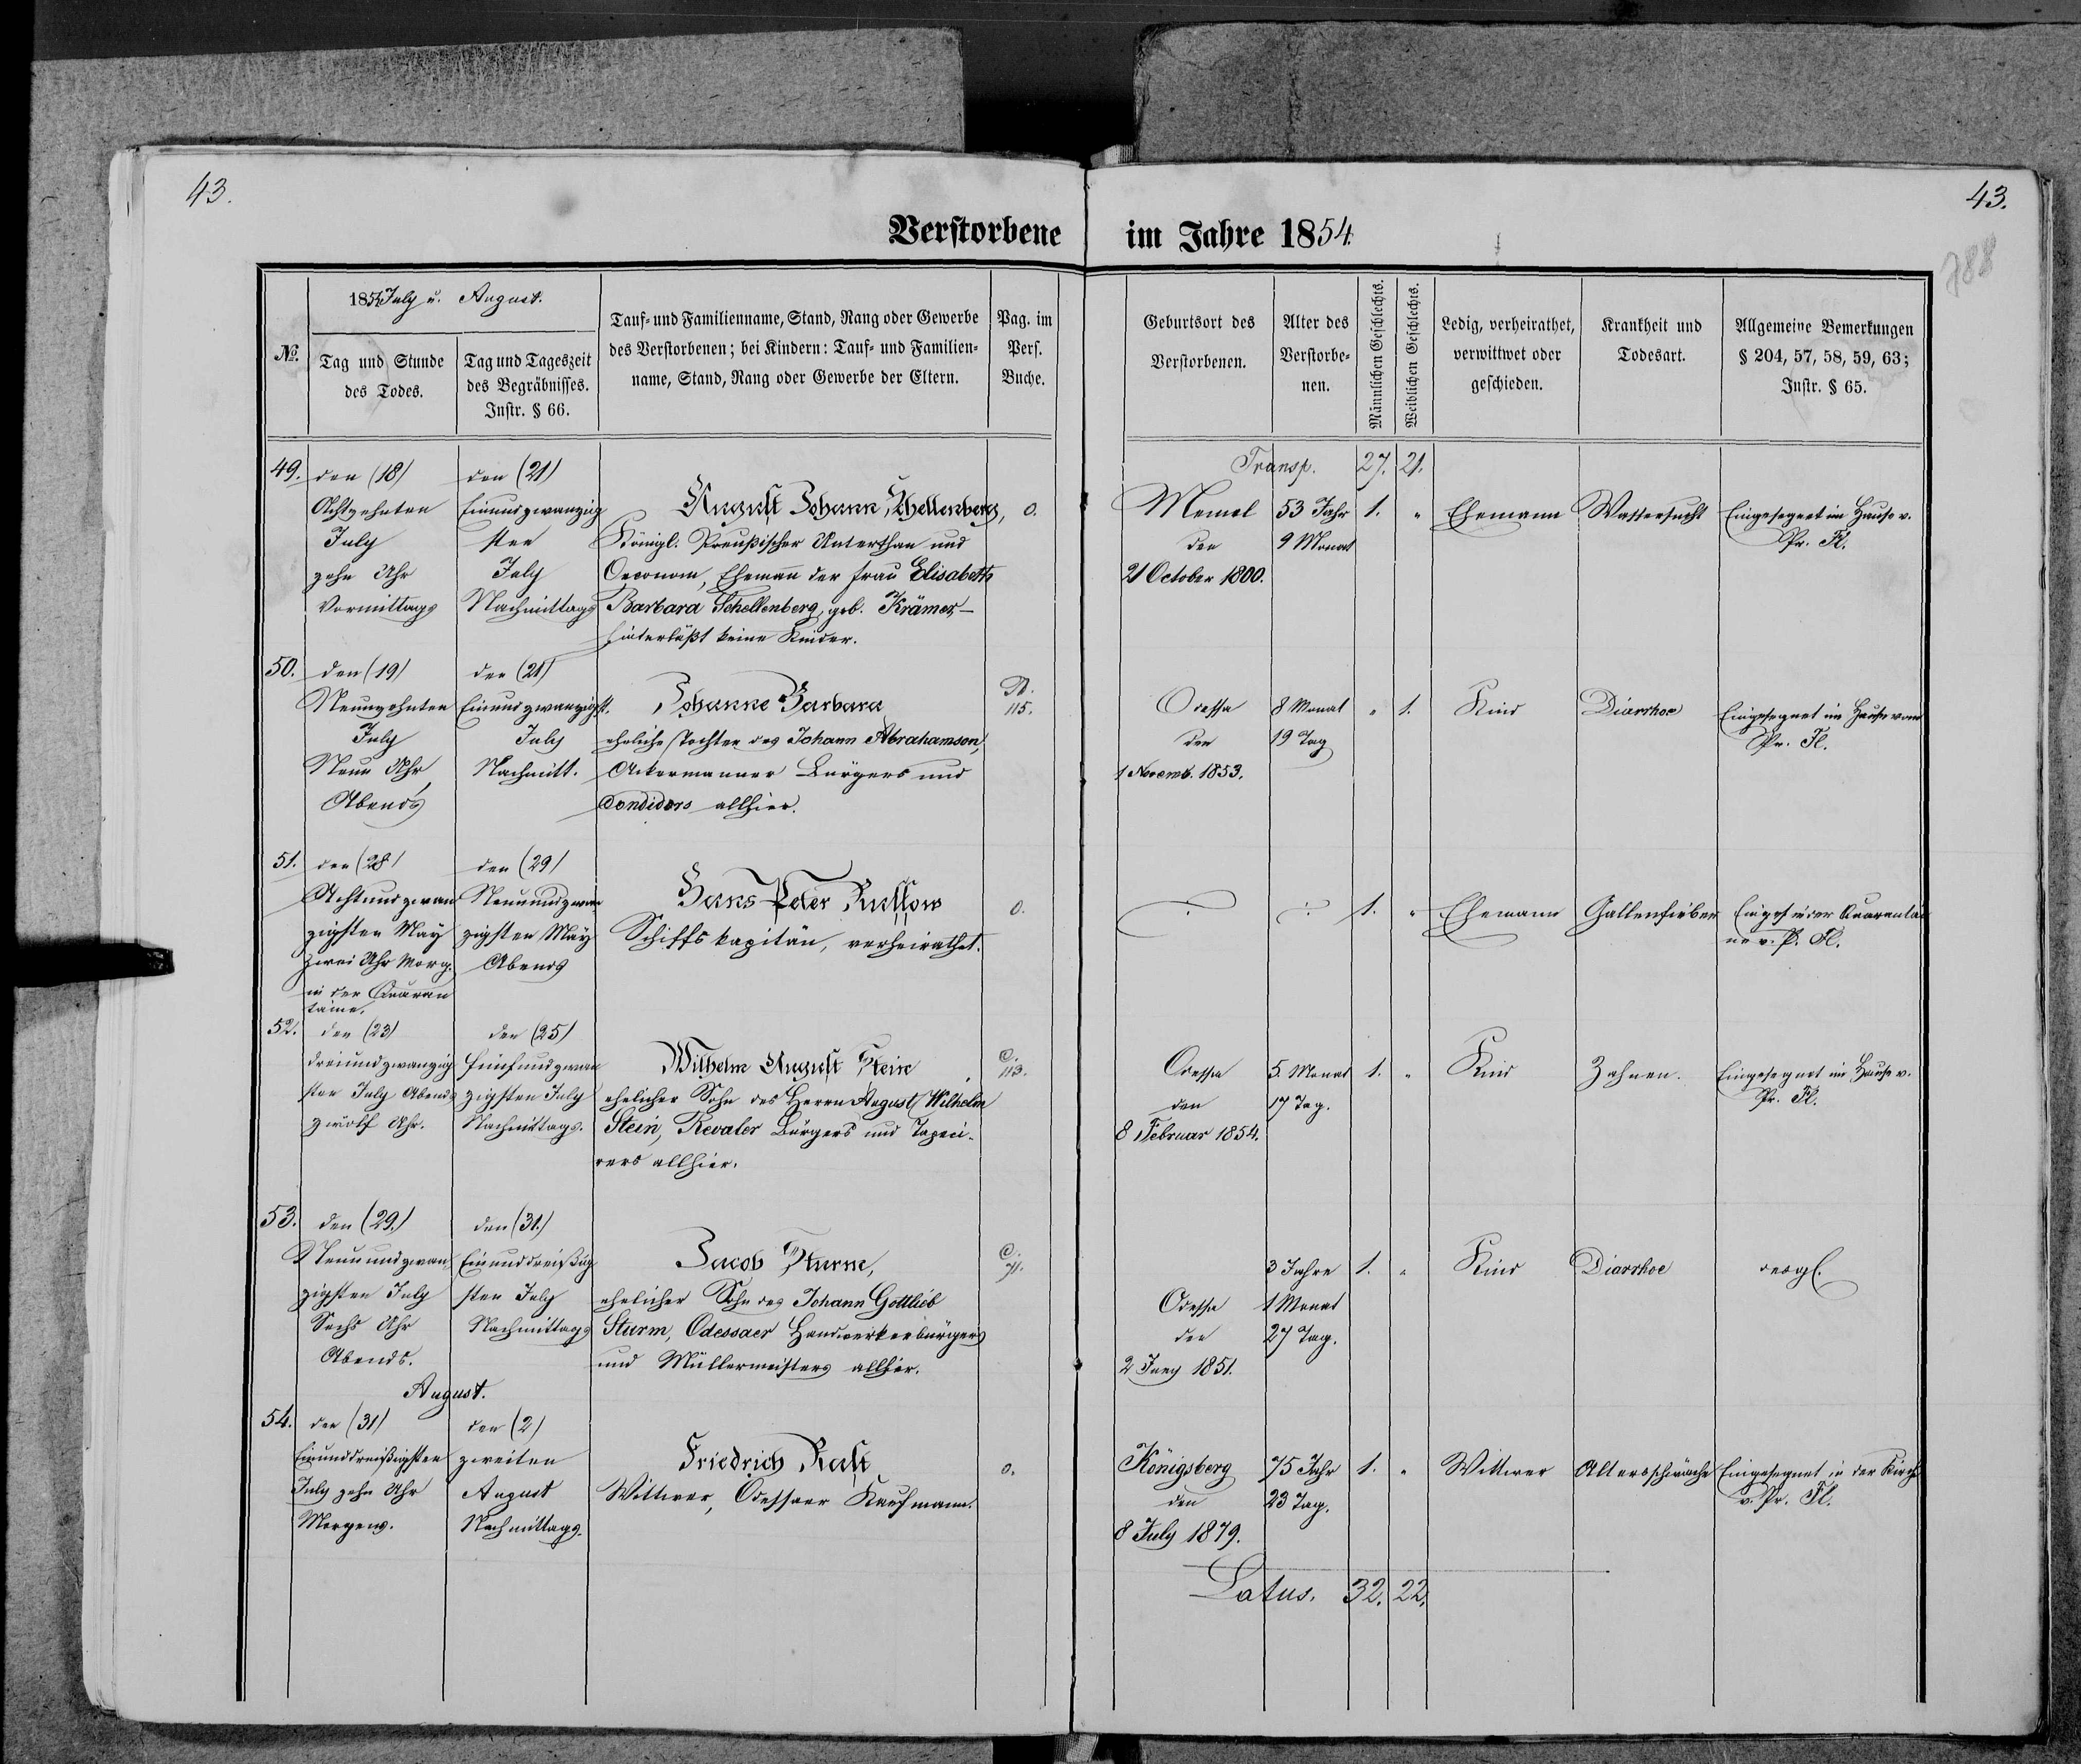 43.
43.
788
Verstorbene im Jahre 1854.
1854 July u. August.
№.
Tag und Stunde
des Todes.
Tag und Tageszeit
des Begräbnisses.
Instr. § 66.
Tauf- und Familienname, Stand, Rang oder Gewerbe
des Verstorbenen; bei Kindern: Tauf- und Familien-
name, Stand, Rang oder Gewerbe der Eltern.
Pag. im
Pers.
Buche.
Geburtsort des
Verstorbenen.
Alter des
Verstorbe-
nen.
Männlichen Geschlechts.
Weiblichen Geschlechts.
Ledig, verheirathet,
verwittwet oder
geschieden.
Krankheit und
Todesart.
Allgemeine Bemerkungen
§ 204, 57, 58, 59, 63;
Instr. § 65.
Transp. 27. 21.
49.
den (18)
Achtzehnten
July
zehn Uhr
Vormittags
den (21)
Einundzwanzig
sten
July
Nachmittags
August Johann Schellenberg,
Königl. Preußischer Unterthan und
Oeconom, Ehemann der Frau Elisabeth
Barbara Schellenberg, geb. Krämer,—
hinterläßt keine Kinder.
0.
Memel
den
21 October 1800.
53 Jahr
9 Monat
1. "
Ehemann
Wassersucht
Eingesegnet im Hause v.
Pr. Fl.
50.
den (19)
Neunzehnten
July
Neun Uhr
Abends
den (21)
Einundzwanzigst.
July
Nachmitt.
Johanne Barbara
eheliche Tochter des Johann Abrahamson,
Ackermanner Bürgers und
Condidors allhier.
B.
115.
Odessa
den
1 Novemb. 1853.
8 Monat
19 Tag
" 1.
Kind
Diarrhoe
Eingesegnet im Hause vom
Pr. Fl.
51.
den (28)
Achtundzwan
zigsten May
zwei Uhr Morg.
in der Quaran
taine.
den (29)
Neunundzwan
zigsten May
Abends
Hans Peter Russow
Schiffskapitän, verheirathet.
0.
÷
÷
1. "
Ehemann
Gallenfieber
Einges. in der Quarantai
ne v. P. Fl.
52.
den (23)
dreiundzwanzig
sten July Abends
zwölf Uhr.
den (25)
fünfundzwan
zigsten July
Nachmittags.
Wilhelm August Stein
ehelicher Sohn des Herrn August Wilhelm
Stein, Revaler Bürgers und Tapeci-
rers allhier.
C.
113.
Odessa
den
8 Februar 1854.
5. Monat
17 Tag.
1. "
Kind
Zahnen.
Eingesegnet im Hause v.
Pr. Fl.
53.
den (29.)
Neunundzwan
zigsten July
Sechs Uhr
Abends.
den (31.)
Einunddreißig
sten July
Nachmittags
Jacob Sturm,
ehelicher Sohn des Johann Gottlieb
Sturm, Odessaer Handwerkerbürgers
und Müllermeisters allhier.
C.
71.
Odessa
den
2 Juny 1851.
3 Jahre
1 Monat
27 Tag.
1. "
Kind
Diarrhoe
desgl.
August.
54.
den (31)
Einunddreißigsten
July zehn Uhr
Morgens.
den (2)
zweiten
August
Nachmittags.
Friedrich Rast
Wittwer, Odessaer Kaufmann.
0.
Königsberg
den
8 July 1879.
75 Jahr
23 Tag.
1. "
Wittwer
Altersschwäche
Eingesegnet in der Kirche
v. Pr. Fl.
Latus. 32. 22.